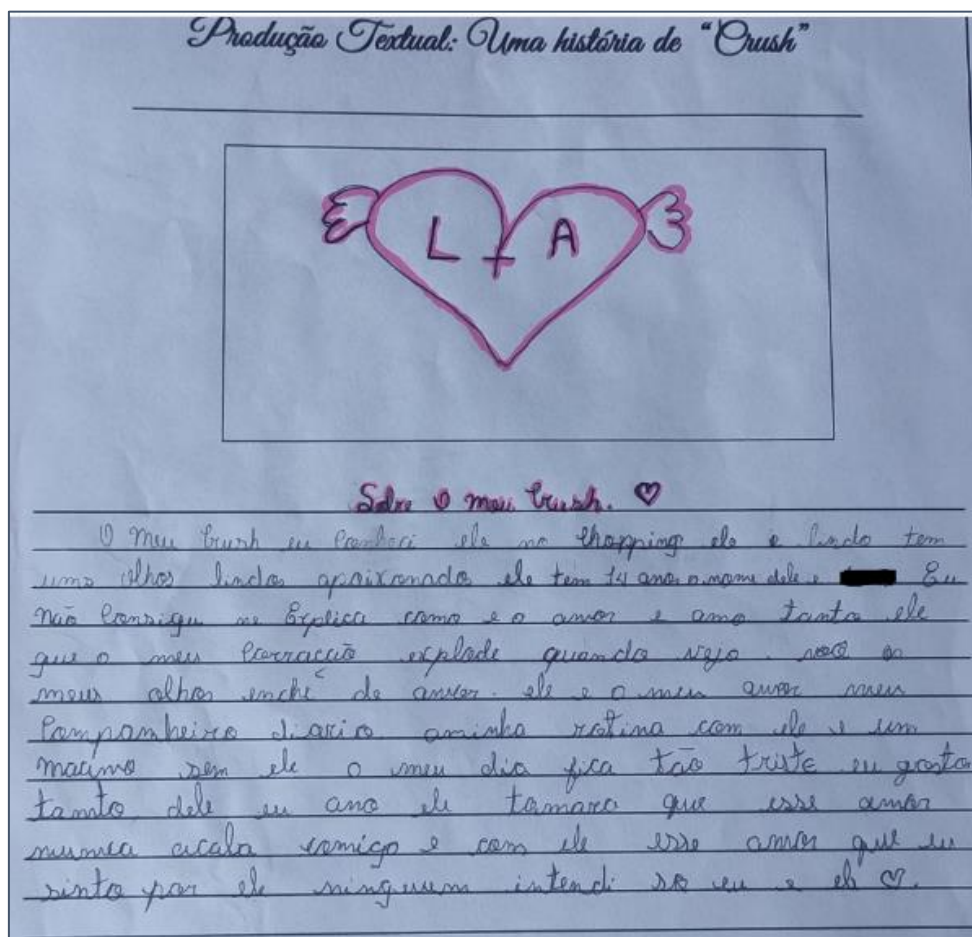 Produção Textual: Uma história de “Crush”
L + A
Sobre o meu Crush. ♡
O meu Crush eu Conheci ele no Shopping ele e lindo tem
umos olhos lindos apaixonado ele tem 14 anos o nome dele e Eu
não Consigu me Explica como e o amor e amo tanto ele
que o meu Corração explode quando vejo. os
meus olhos enchê de amor. ele e o meu amor meu
Companheiro diario aminha rotina com ele e um
macimo sem ele o meu dia fica tão triste eu gosto
tamto dele eu ano ele tamara que esse amor
numca acaba comigo e com ele esse amor que eu
sinto por ele ninguem intendi so eu e ele ♡.